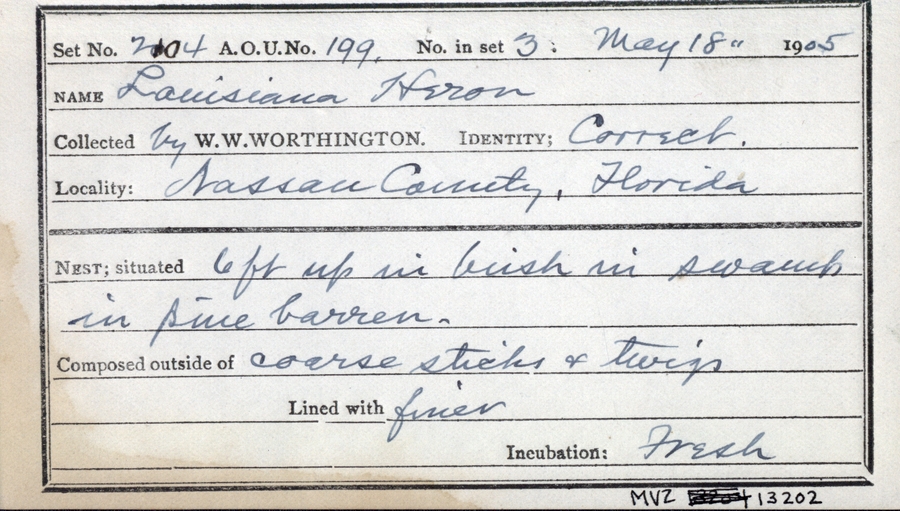 Set No. 2104 A.O.U. No. 199. No. in set 3. May 18" 1905
NAME Louisiana Heron
Collected by W.W.WORTHINGTON. IDENTITY; Correct.
Locality: Nassau County, Florida
NEST; situated 6 ft up in bush in swamp
in pine barren.
Composed outside of coarse sticks & twigs
Lined with finer
Incubation: Fresh
MVZ 13202